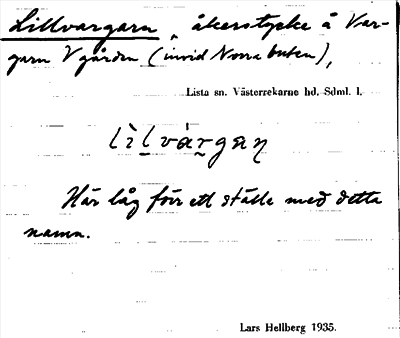 Lillvargarn, åkerstycke å Var-
garn Vgården (invid Norra buten),
Lista sn. Västerrekarne hd. Sdml. l.
lìlvárgaɳ
Här låg förr ett ställe med detta
namn.
Lars Hellberg 1935.